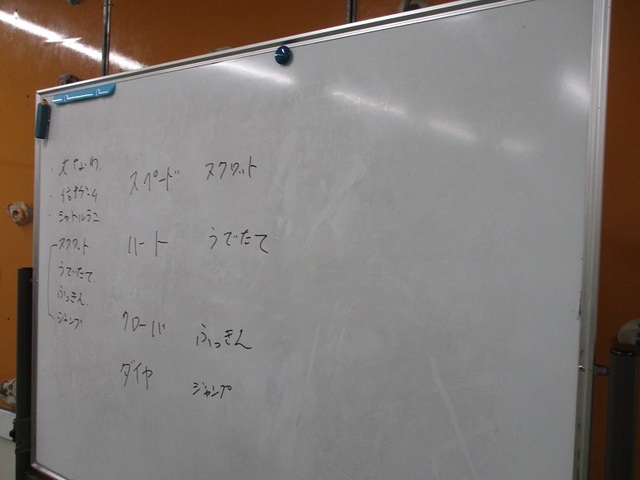 ・大なわ
・信号ゲーム
・シャトルラン
スクワット
うでたて
ふっきん
ジャンプ
スペード スクワット
ハート うでたて
クローバ ふっきん
ダイヤ ジャンプ